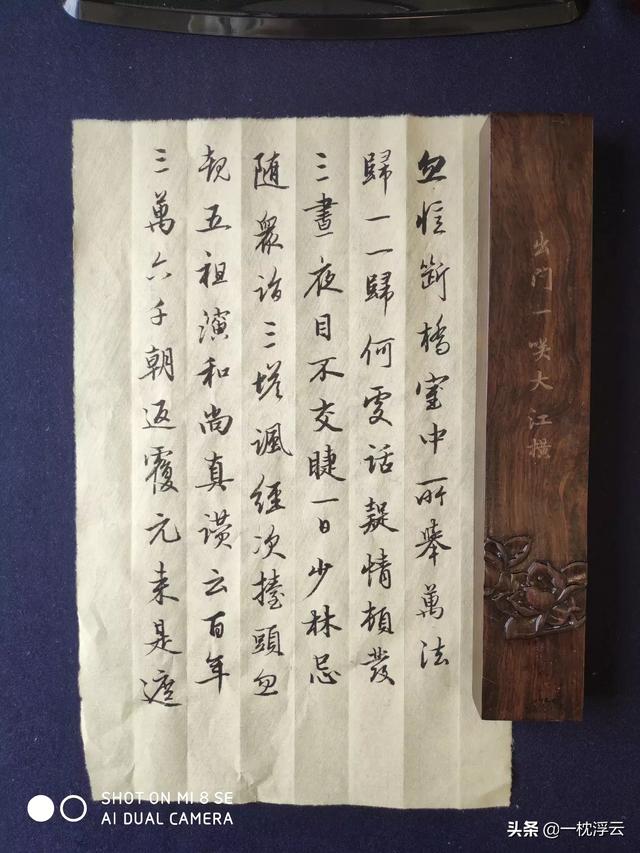 忽憶斷橋室中所舉萬法
歸一一歸何處話疑情頓發
三晝夜目不交睫一日少林忌
隨眾詣三塔諷經次擡頭忽
覩五祖演和尚真讚云百年
三萬六千朝返覆元来是遮
出门一笑大江横
SHOT ON MI 8 SE
AI DUAL CAMERA
头条 @一枕浮云